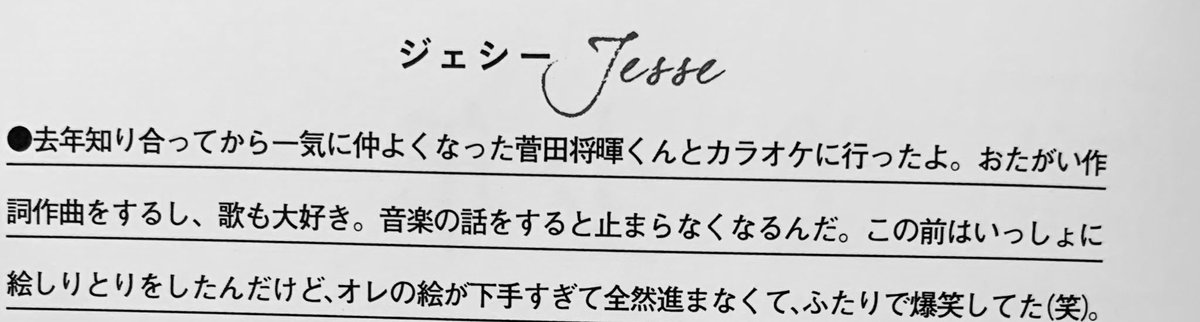 ジェシー Jesse
●去年知り合ってから一気に仲よくなった菅田将暉くんとカラオケに行ったよ。おたがい作
詞作曲をするし、歌も大好き。音楽の話をすると止まらなくなるんだ。この前はいっしょに
絵しりとりをしたんだけど、オレの絵が下手すぎて全然進まなくて、ふたりで爆笑してた(笑)。